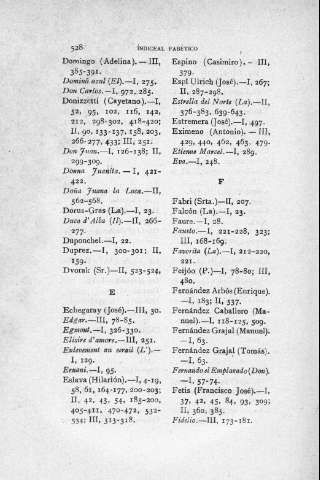 528 ÍNDICE ALFABÉTICO
Domingo (Adelina).—III,
385-391.
Dominó azul (El).—I, 275.
Don Carlos.—I, 972, 285.
Donizzetti (Cayetano).—I,
52, 95, 102, 116, 142,
212, 298-302, 418-420;
II, 90, 133-137, 158, 203,
266-277, 433; III, 251.
Don Juan.—I, 126-138; II,
299-309.
Donna Juanita.—I, 421-
422.
Doña Juana la Loca.—II,
562-568.
Dorus-Gras (La).—I, 23.
Duca d'Alba (Il).—II, 266-
277.
Duponchel.—I, 22.
Duprez.—I, 300-301; II,
159.
Dvorak (Sr.)—II, 523-524.
E
Echegaray (José).—III, 30.
Edgar.—III, 78-85.
Egmont.—I, 326-330.
Elixire d'amore.—III, 251.
Enlevement au serail (L').—
I, 129.
Ernani.—I, 95.
Eslava (Hilarión).—I, 4-19,
58, 61, 164-177, 200-203;
II, 42, 43, 54, 185-200,
405-411, 470-472, 532-
534; III, 313-318.
Espino (Casimiro).—III,
379.
Espí Ulrich (José).—I, 267;
II, 287-298.
Estrella del Norte (La).—II,
376-383, 639-643.
Estremera (José).—I, 497.
Eximeno (Antonio).—III,
429, 440, 462, 463, 479.
Etienne Marcel.—I, 289.
Eva.—I, 248.
F
Fabri (Srta.)—II, 207.
Falcón (La).—I, 23.
Faure.—I, 28.
Fausto.—I, 221-228, 323;
III, 168-169.
Favorita (La).—I, 212-220,
221.
Feijóo (P.)—I, 78-80; III,
480.
Fernández Arbós (Enrique).
—I, 183; II, 537.
Fernández Caballero (Ma-
nuel).—I, 118-125, 509.
Fernández Grajal (Manuel).
—I, 63.
Fernández Grajal (Tomás).
—I, 63.
Fernando el Emplazado (Don).
—I, 57-74.
Fetis (Francisco José).—I,
37, 42, 45, 84, 93, 309;
II, 360, 385.
Fidelio.—III, 173-181.